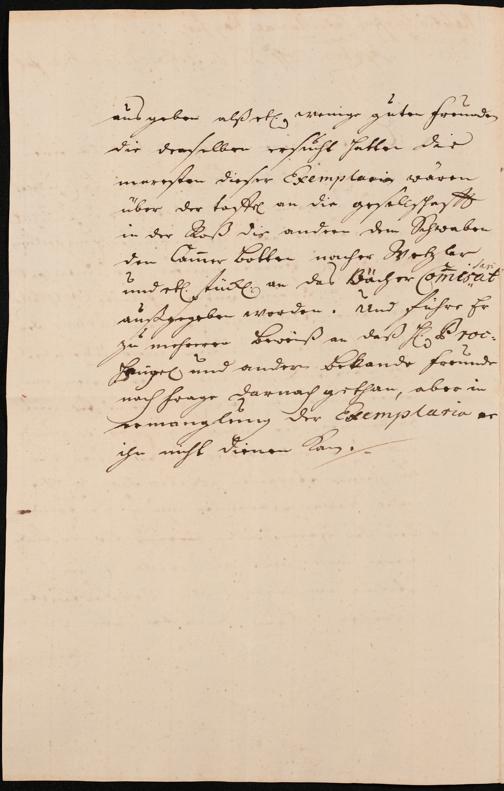 aus geben alß etl. wenige guten freunden
die derselben ersucht hatten die
meresten dieser Exemplaria wären
über der taffel an die gesellschafft
in der Roß die andern dem Schwaben
den Camer botten nacher Wetzlar
und etl. stückl. an das Bücher Comissariat
außgegeben worden. Und führe Er
zu mehrern beweiß an daß H. Proc:
und andere bekande freunde
nach frage darnach gethan, aber in
ermanglung der Exemplaria er
ihn nicht dienen kan.